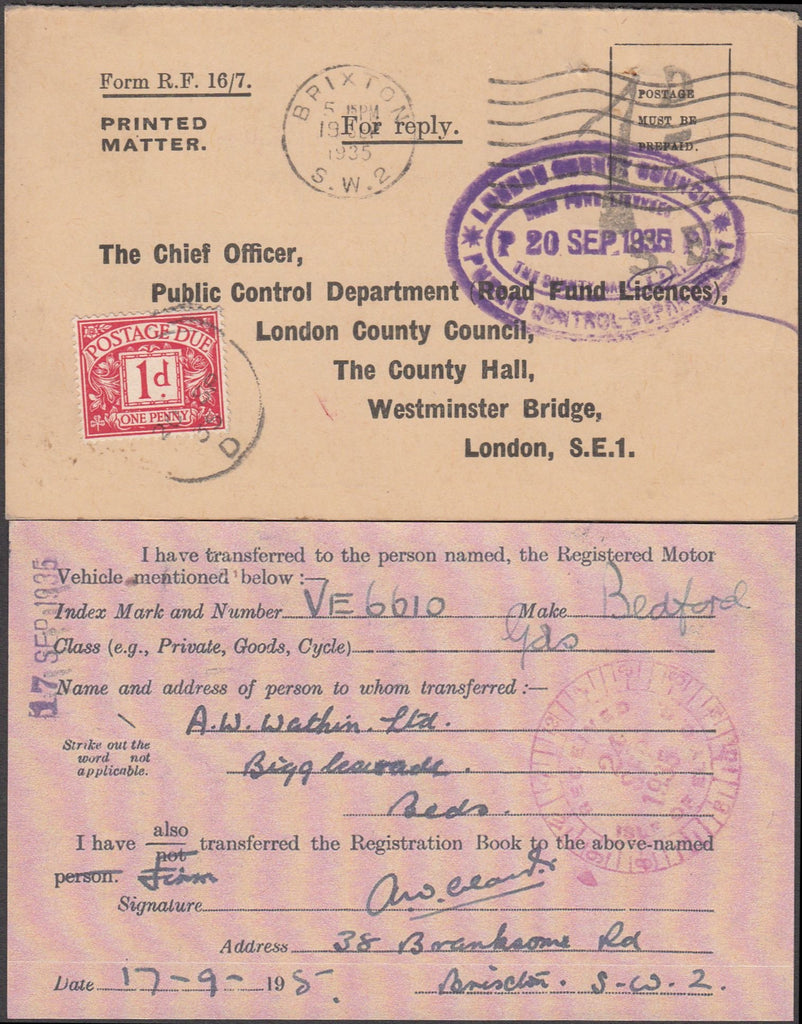 Form R.F. 16/7.
PRINTED
MATTER.
BRIXTON
5 15PM
19 SEP
1935
S.W.2
For reply.
POSTAGE
MUST BE
PREPAID.
LONDON COUNTY COUNCIL
ROAD FUND LICENCES
P 20 SEP. 1935 P
THE COUNTY HALL
PUBLIC CONTROL DEPARTMENT
The Chief Officer,
Public Control Department (Road Fund Licences),
London County Council,
The County Hall,
Westminster Bridge,
London, S.E.1.
POSTAGE DUE
1d.
ONE PENNY
I have transferred to the person named, the Registered Motor
Vehicle mentioned below :—
17 SEP 1935
Index Mark and Number VE 6610 Make Bedford
Class (e.g., Private, Goods, Cycle) Gds
Name and address of person to whom transferred :—
A.W. Wathin. Ltd.
Strike out the
word not
applicable.
Biggleswade.
Beds.
RECEIVED
24 SEP 1935
ISLE OF ELY
I have also
not transferred the Registration Book to the above-named
person. Firm
Signature
Address 38 Branksome Rd
Date 17-9-1935. Brixton. S.W.2.